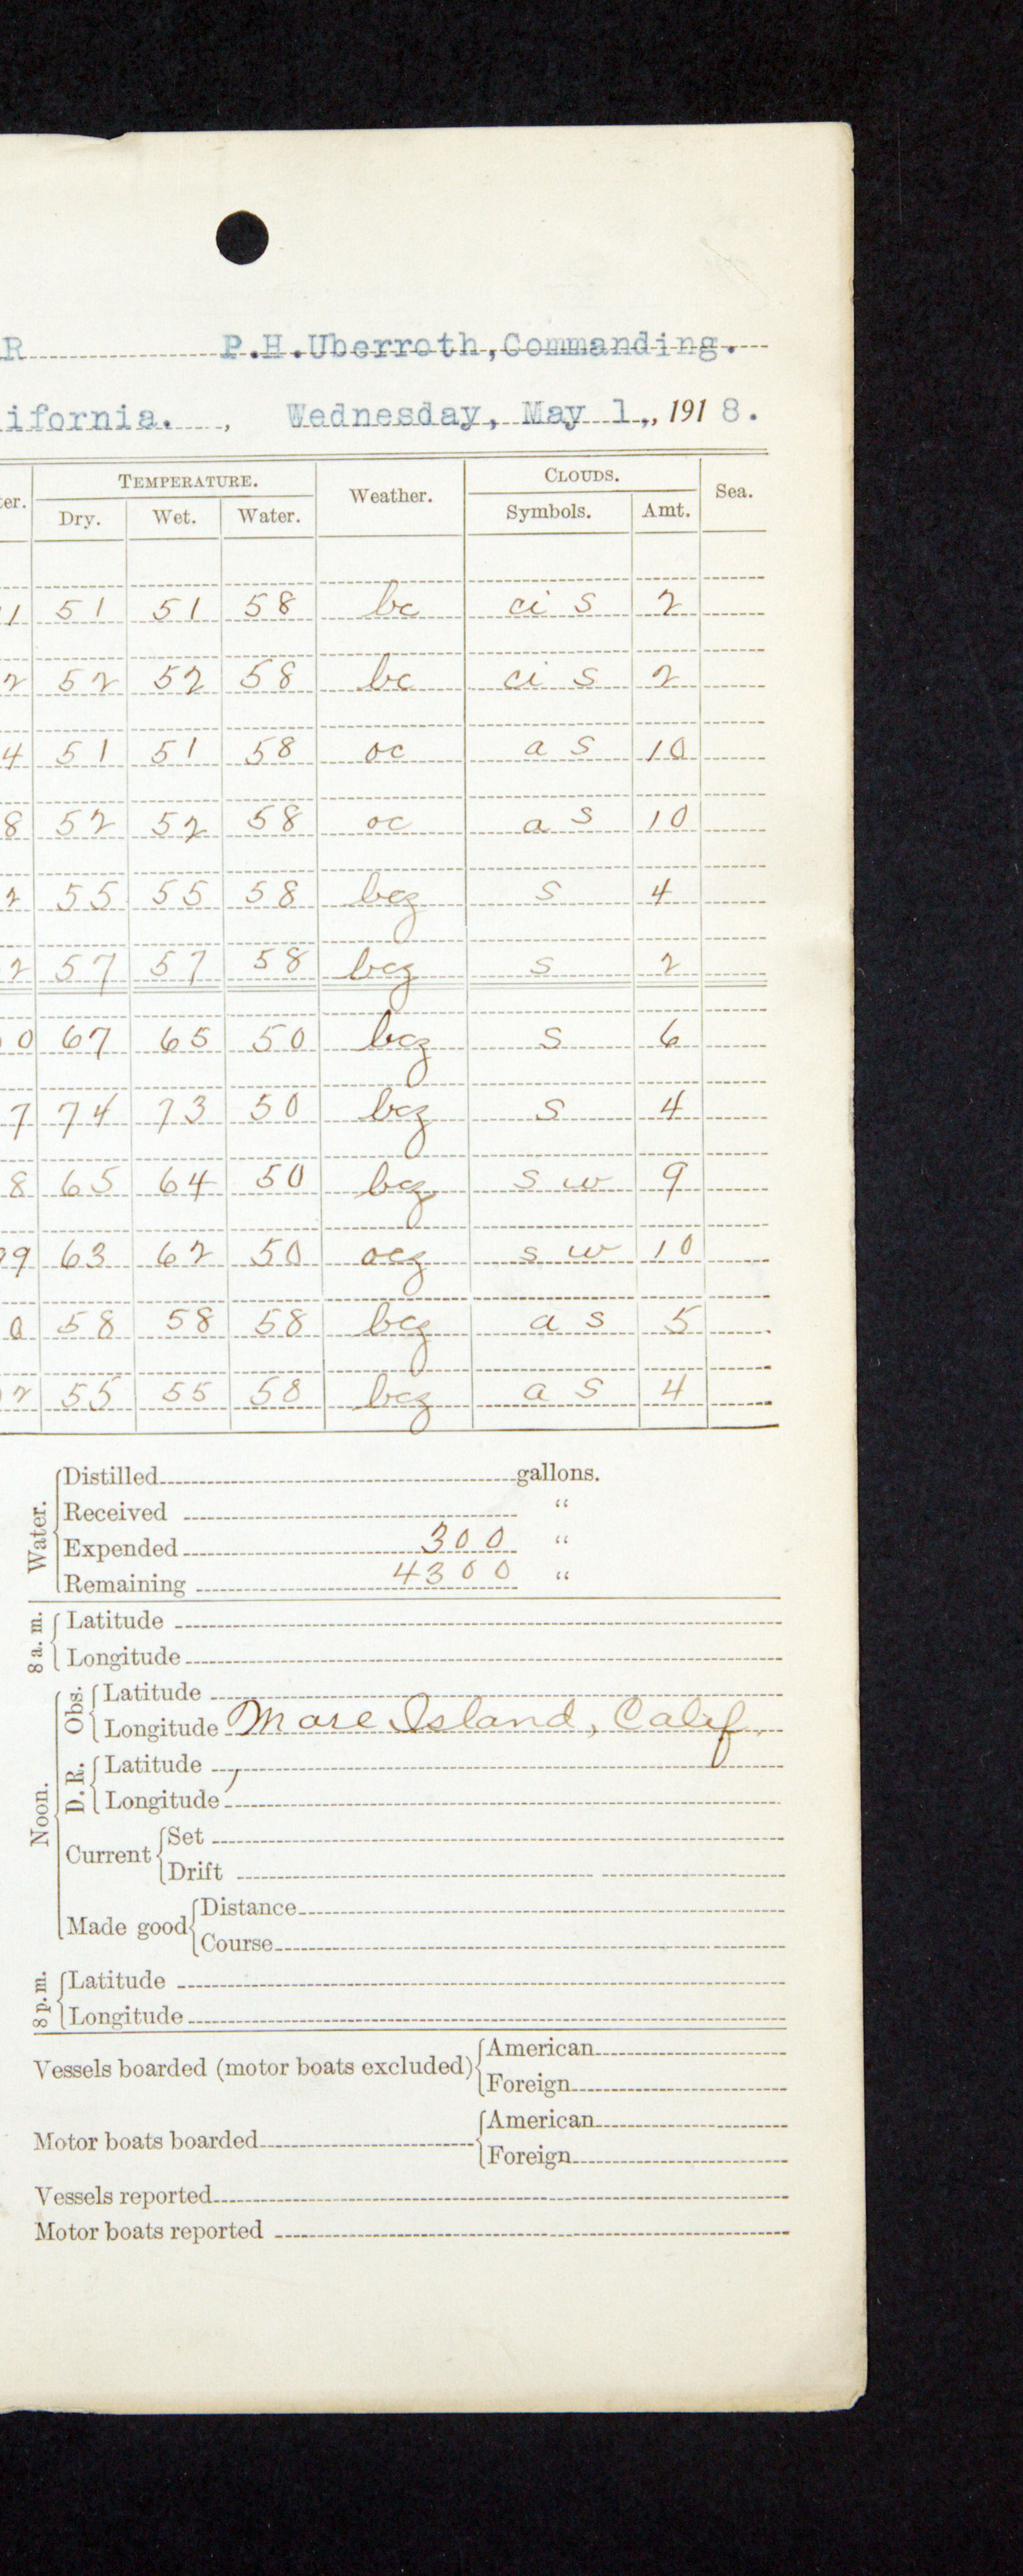 R P.H.Uberroth,Commanding.
ifornia. , Wednesday, May 1,, 1918.
er. TEMPERATURE. Weather. CLOUDS. Sea.
Dry. Wet. Water. Symbols. Amt.
1 51 51 58 bc ci s 2
2 52 52 58 bc ci s 2
4 51 51 58 oc a s 10
8 52 52 58 oc a s 10
2 55 55 58 bcz s 4
2 57 57 58 bcz s 2
0 67 65 50 bcz s 6
7 74 73 50 bcz s 4
8 65 64 50 bcz s w 9
99 63 62 50 ocz s w 10
0 58 58 58 bcz a s 5
2 55 55 58 bcz a s 4
Water.
Distilled gallons.
Received "
Expended 300 "
Remaining 4300 "
8 a. m.
Latitude
Longitude
Noon.
Obs.
Latitude
Longitude Mare Island, Calif.
D. R.
Latitude
Longitude
Current
Set
Drift
Made good
Distance
Course
8 p. m.
Latitude
Longitude
Vessels boarded (motor boats excluded)
American
Foreign
Motor boats boarded
American
Foreign
Vessels reported
Motor boats reported